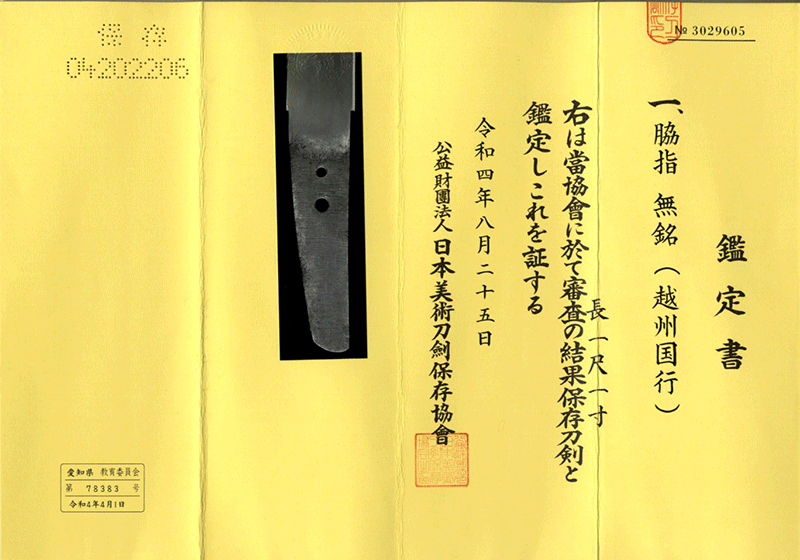 № 3029605
鑑定書
一、脇指 無銘(越州国行)
長一尺一寸
右は當協會に於て審査の結果保存刀剣と
鑑定しこれを証する
令和四年八月二十五日
公益財團法人日本美術刀劍保存協會
保存
04202206
愛知県 教育委員会
第 78383 号
令和4年4月1日